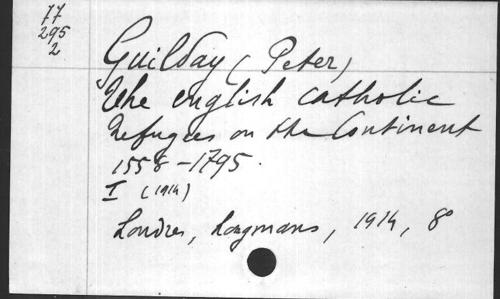 77
295
2
Guilday (Peter)
The english catholic
refugees on the Continent
1558-1795.
I (1914)
Londres, Longmans, 1914, 8°